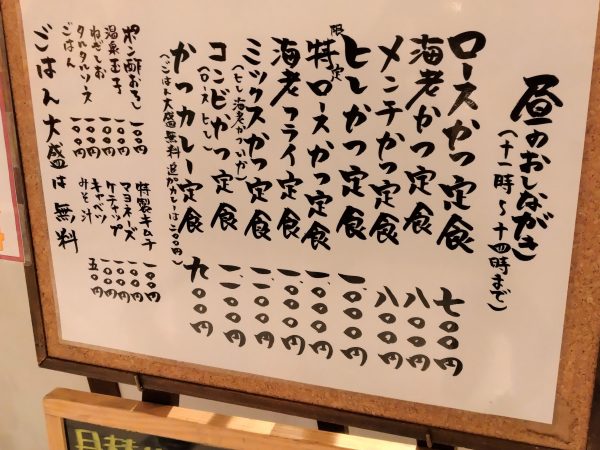 昼のおしながき
(十一時〜十四時まで)
ロースかつ定食 七〇〇円
海老かつ定食 八〇〇円
メンチかつ定食 八〇〇円
ヒレかつ定食 一、〇〇〇円
限定 特ロースかつ定食 一、〇〇〇円
海老フライ定食 一、〇〇〇円
ミックスかつ定食 一、〇〇〇円
(ヒレ、海老かつ、いか)
コンビかつ定食 一、〇〇〇円
(ロース ヒレ)
かつカレー定食 九〇〇円
(ごはん大盛無料 追加カレーは二〇〇円)
ポン酢おろし 一〇〇円
温泉玉子 一〇〇円
ねぎしお 一〇〇円
タルタルソース 一〇〇円
ごはん 一〇〇円
特製キムチ 一〇〇円
マヨネーズ 一〇〇円
ケチャップ 一〇〇円
キャベツ 一〇〇円
みそ汁 五〇円
ごはん大盛は無料